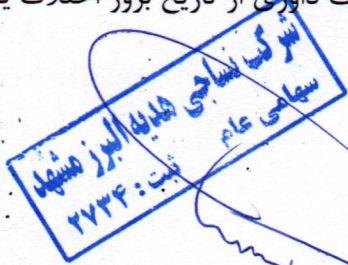 داوری از تاریخ بروز اختلاف
شرکت نساجی هدیه البرز مشهد
سهامی عام
ثبت : ۲۷۳۴